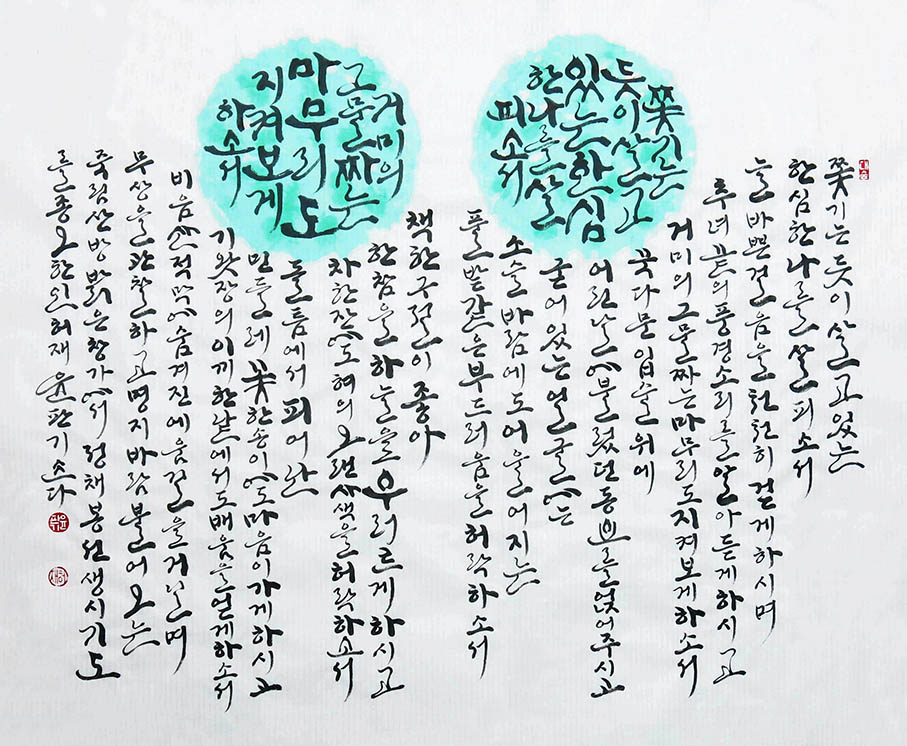 쫓기는
듯이 살고
있는 한심
한 나를 살
피소서
거미의
그물 짜는
마무리도
지켜보게
하소서
쫓기는 듯이 살고 있는
한심한 나를 살피소서
늘 바쁜 걸음을 천천히 걷게 하시며
추녀 끝의 풍경소리를 알아듣게 하시고
거미의 그물 짜는 마무리도 지켜보게 하소서
꾹 다문 입술 위에
어린 날에 불렀던 동요를 얹어주시고
굳어 있는 얼굴에는
소슬바람에도 어울어지는
풀밭 같은 부드러움을 허락하소서
책 한 구절이 좋아
한참을 하늘을 우러르게 하시고
차 한잔에도 혀의 오랜 사색을 허락하소서
돌 틈에서 피어난
민들레꽃 한 송이에도 마음이 가게 하시고
기왓장의 이끼 한낱에서도 배움을 얻게 하소서
비음산 적막에 숨겨진 에움길을 거닐며
무상을 관찰하고 명지바람 불어오는
죽림산방 밝은 창가에서 정채봉 선생 시 기도
를 종오한인 허재 윤판기 쓰다